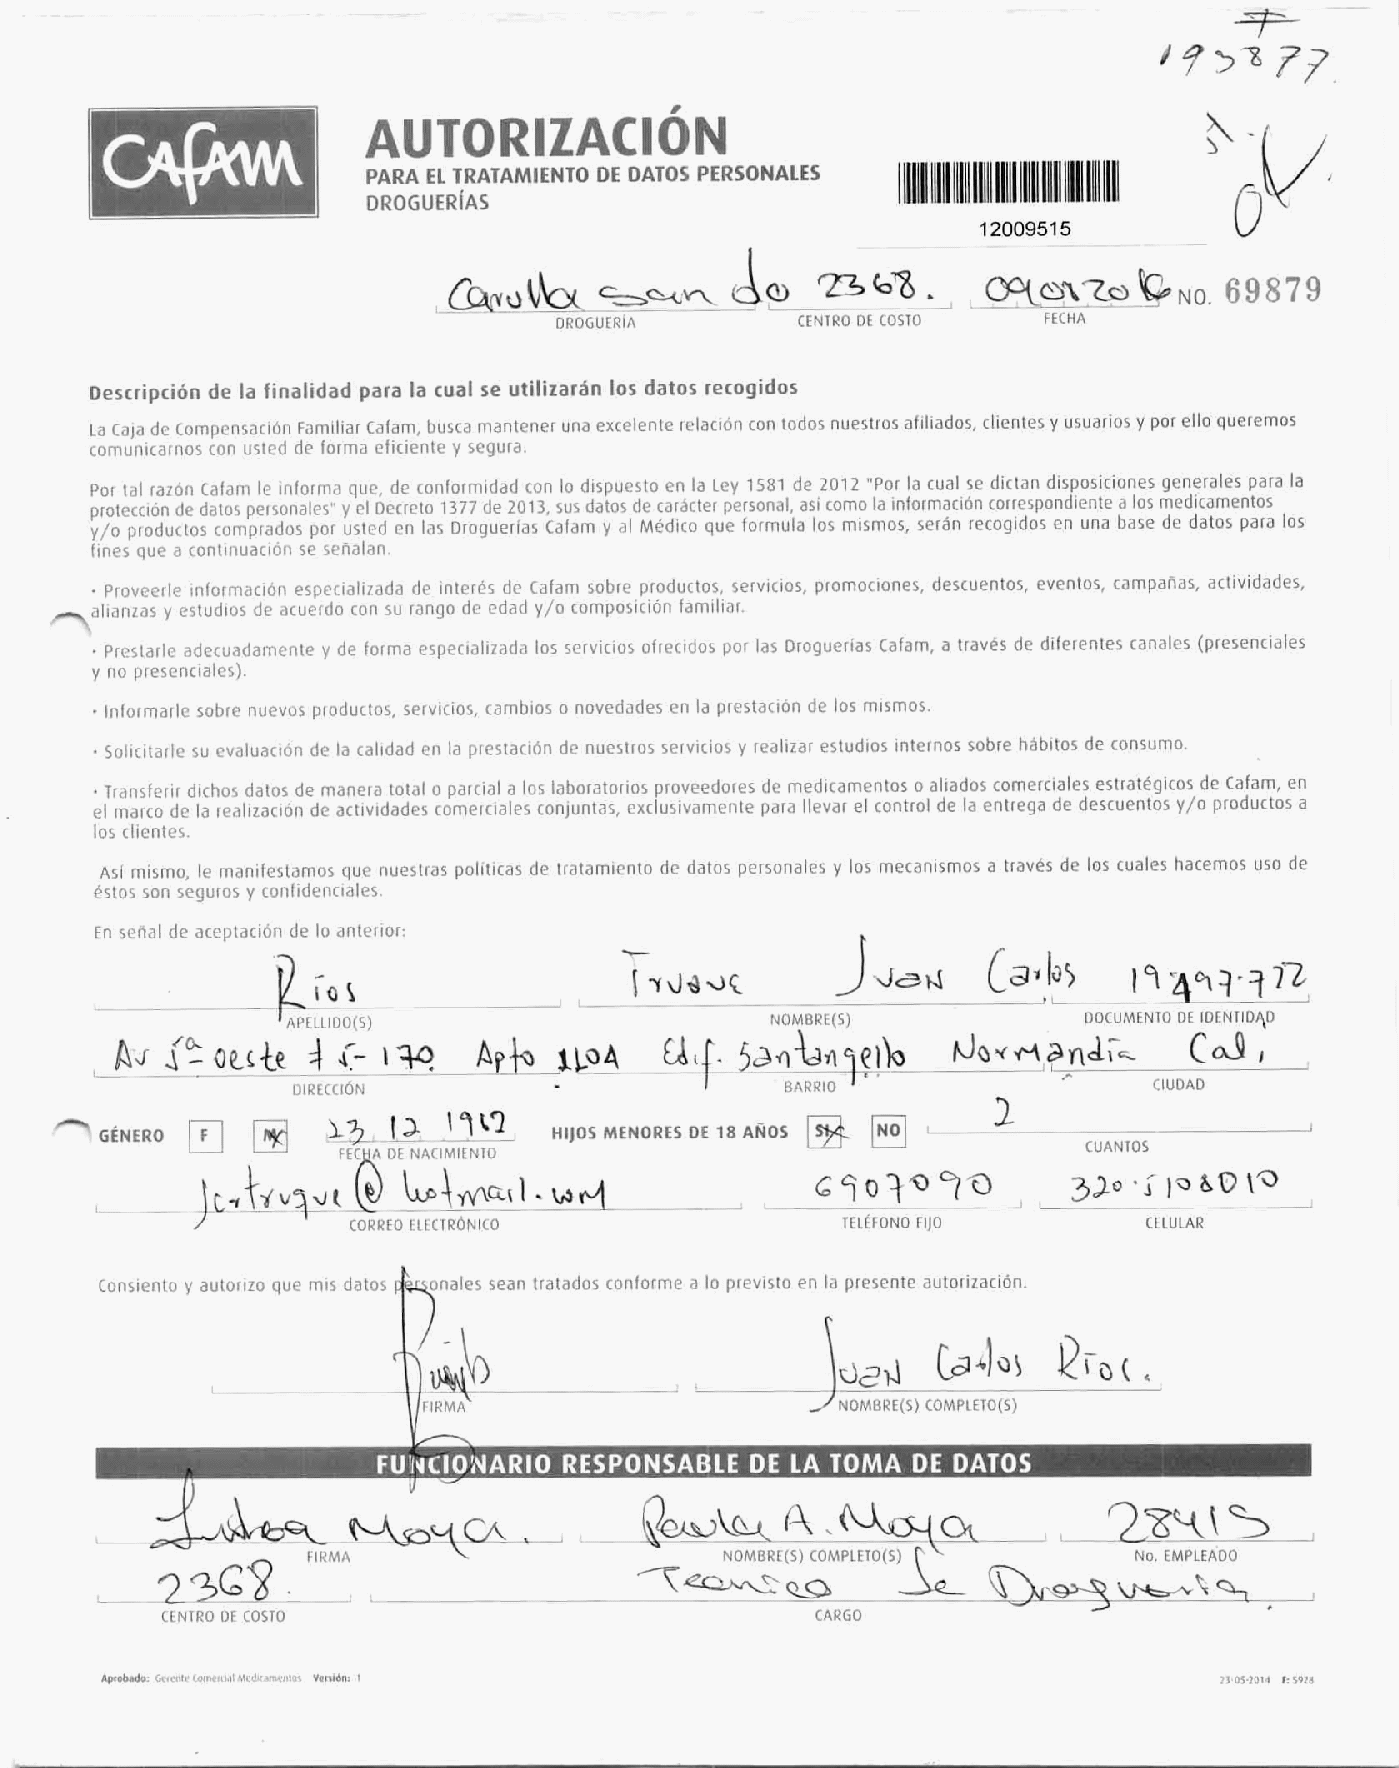 193877
CAFAM
AUTORIZACIÓN
PARA EL TRATAMIENTO DE DATOS PERSONALES
DROGUERÍAS
ok
12009515
Carulla San do 2368. 2016 NO. 69879
DROGUERÍA CENTRO DE COSTO FECHA
Descripción de la finalidad para la cual se utilizarán los datos recogidos
La Caja de Compensación Familiar Cafam, busca mantener una excelente relación con todos nuestros afiliados, clientes y usuarios y por ello queremos
comunicarnos con usted de forma eficiente y segura.
Por tal razón Cafam le informa que, de conformidad con lo dispuesto en la Ley 1581 de 2012 "Por la cual se dictan disposiciones generales para la
protección de datos personales" y el Decreto 1377 de 2013, sus datos de carácter personal, así como la información correspondiente a los medicamentos
y/o productos comprados por usted en las Droguerías Cafam y al Médico que formula los mismos, serán recogidos en una base de datos para los
fines que a continuación se señalan.
· Proveerle información especializada de interés de Cafam sobre productos, servicios, promociones, descuentos, eventos, campañas, actividades,
alianzas y estudios de acuerdo con su rango de edad y/o composición familiar.
· Prestarle adecuadamente y de forma especializada los servicios ofrecidos por las Droguerías Cafam, a través de diferentes canales (presenciales
y no presenciales).
· Informarle sobre nuevos productos, servicios, cambios o novedades en la prestación de los mismos.
· Solicitarle su evaluación de la calidad en la prestación de nuestros servicios y realizar estudios internos sobre hábitos de consumo.
· Transferir dichos datos de manera total o parcial a los laboratorios proveedores de medicamentos o aliados comerciales estratégicos de Cafam, en
el marco de la realización de actividades comerciales conjuntas, exclusivamente para llevar el control de la entrega de descuentos y/o productos a
los clientes.
Así mismo, le manifestamos que nuestras políticas de tratamiento de datos personales y los mecanismos a través de los cuales hacemos uso de
éstos son seguros y confidenciales.
En señal de aceptación de lo anterior:
Ríos Truque Juan Carlos 19.497.772
APELLIDO(S) NOMBRE(S) DOCUMENTO DE IDENTIDAD
Av 5ª oeste # 5-170 Apto 1104 Edif. Santangello Normandía Cali
DIRECCIÓN BARRIO CIUDAD
GÉNERO F M 23 12 1962 HIJOS MENORES DE 18 AÑOS SI NO 2
FECHA DE NACIMIENTO CUANTOS
jcrtruque@hotmail.com 6907090 320.5108010
CORREO ELECTRÓNICO TELÉFONO FIJO CELULAR
Consiento y autorizo que mis datos personales sean tratados conforme a lo previsto en la presente autorización.
Juan Carlos Ríos.
FIRMA NOMBRE(S) COMPLETO(S)
FUNCIONARIO RESPONSABLE DE LA TOMA DE DATOS
Moya. Paula A. Moya 28415
FIRMA NOMBRE(S) COMPLETO(S) No. EMPLEADO
2368. Tecnico de Drogueria.
CENTRO DE COSTO CARGO
Aprobado: Gerente Comercial Medicamentos Versión: 1 23-05-2014 F: 5928